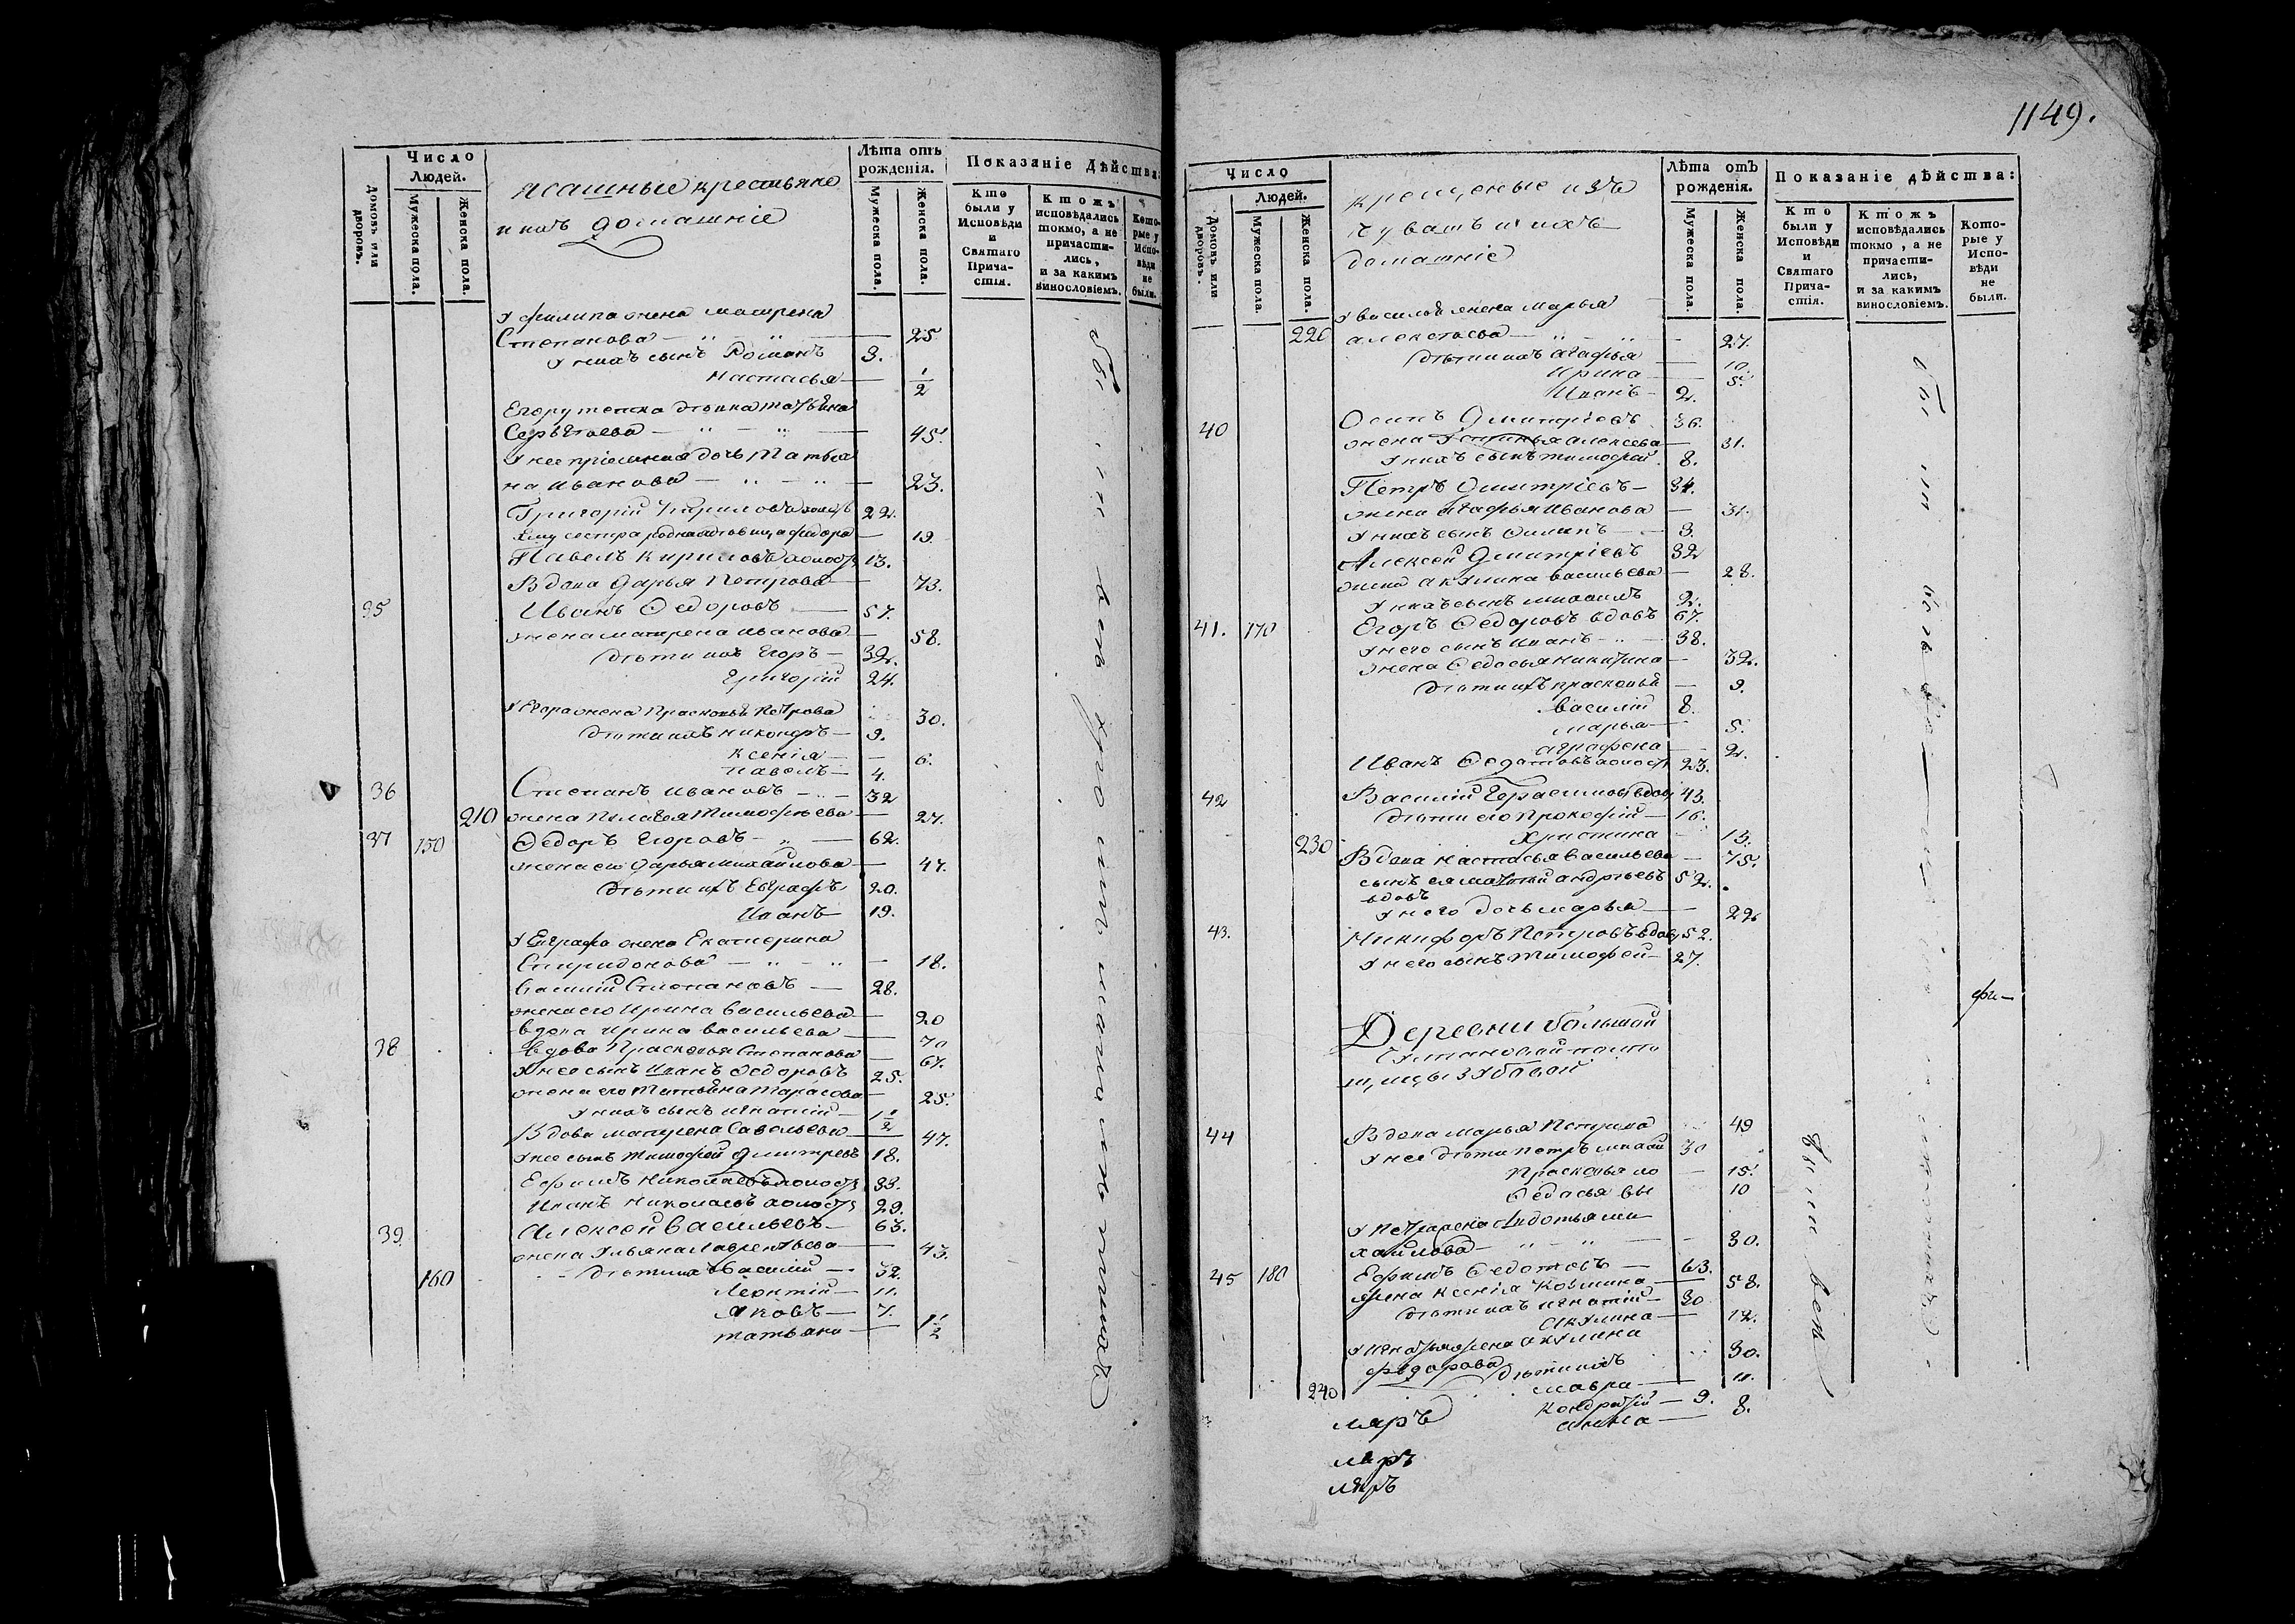 Число Людей.
Лѣта отъ рожденія.
Показаніе Дѣйства:
Домовъ или дворовъ.
Мужеска пола.
Женска пола.
ясашные крестьяне
и ихъ домашніе
Мужеска пола.
Женска пола.
Кто были у Исповѣди и Святаго Прича-стія.
Ктожъ исповѣдались токмо, а не причасти-лись, и за какимъ винословіемъ.
Кото-рые у Испо-вѣди не были.
У филипа жена матрена
Степанова 25
У нихъ сынъ Романъ 3.
Настасья 1/2
Егору тетка девка татьяна
Сергѣева 45.
У нее пріемная дочь Татья
на иванова 23.
Григорий Кириловъ холостъ 22.
ему сестра родная девица федора 19
Павелъ Кириловъ холостъ 13.
Вдова Дарья Петрова 73.
35 Иванъ Федоровъ 57.
жена матрена иванова 58.
дѣти ихъ Егоръ 32.
Григорий 24.
У Егора жена Прасковья Петрова 30.
дѣти ихъ никифоръ 9.
Ксенія 6.
павелъ 4.
36 Степанъ ивановъ 32
210 жена Пелагея Тимофѣева 27.
37 150 Федоръ Егоровъ 62.
жена его Дарья михайлова 47.
дѣти ихъ Евграфъ 20.
Иванъ 19.
У Евграфа жена Екатерина
Спиридонова 18.
Василий Степановъ 28.
жена его Ирина васильева 20
вдова ирина васильева 70
38 вдова Прасковья Степанова 67.
У нее сынъ Иванъ Федоровъ 25.
жена его Татьяна Тарасова 25.
У нихъ сынъ игнатий 1 1/2
Вдова матрена Савельева 47.
У нее сынъ тимофей дмитревъ 18.
Ефимъ Николаевъ холостъ 33.
Иванъ Николаевъ холостъ 29.
39. Алексей Васильевъ 63.
жена Ульяна Лаврентьева 43.
160 дѣти ихъ Василий 32.
Леонтий 11.
Яковъ 7.
татьяна 1 1/2
1149.
Число Людей.
Лѣта отъ рожденія.
Показаніе дѣйства:
Домовъ или дворовъ.
Мужеска пола.
Женска пола.
крещеные изъ
чувашъ и ихъ
домашніе
Мужеска пола.
Женска пола.
Кто были у Исповѣди и Святаго Прича-стія.
Ктожъ исповѣдались токмо, а не причасти-лись, и за какимъ винословіемъ.
Кото-рые у Испо-вѣди не были.
У василья жена марья
220 алексѣева 27.
дѣти ихъ агафья 10.
Ирина 5.
Иванъ 2.
40 Осипъ Дмитріевъ 36.
жена Устинья алексева 31.
У нихъ сынъ тимофей 8.
Петръ Дмитріевъ 34.
жена агафья Иванова 31.
У нихъ сынъ Филипъ 3.
Алексей Дмитріевъ 32
жена акулина васильева 28.
У нихъ сынъ михаилъ 2.
41. 170 Егоръ Федоровъ вдовъ 67.
У него сынъ иванъ 38.
жена Федосья Никитина 32.
дѣти ихъ прасковья 9.
василий 8.
марья 5.
аграфена 2.
Иванъ Федотовъ холостъ 23.
42 Василий Герасимовъ вдовъ 43.
дѣти его Прокофий 16.
230 Христина 13.
Вдова Настасья Васильева 75.
сынъ ея матвей андреевъ 52.
вдовъ
У него дочь марья 22.
43. Никифоръ Петровъ вдовъ 52.
У него сынъ тимофей 27.
Деревни большой
44 Вдова марья Петрова 49
У нее дѣти петръ 30
Прасковья 15.
Федосья 10
У Петра жена Авдотья ми
хайлова 30.
45 180 Ефимъ Федотовъ 63.
жена Ксенія Козмина 58.
дѣти ихъ игнатий 30
Акулина 12.
У игнатья жена акулина
федорова 30.
дѣти ихъ
240 мавра 11.
Кондратій 9.
анна 8.